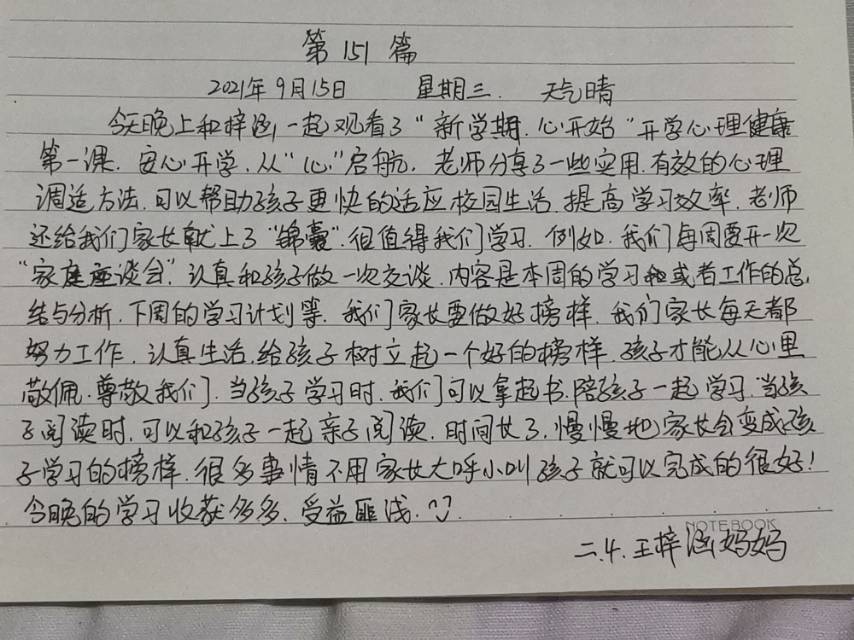 第151篇
2021年9月15日 星期三. 天气晴
今天晚上和梓涵一起观看了"新学期.心开始"开学心理健康
第一课.安心开学.从"心"启航.老师分享了一些实用.有效的心理
调适方法.可以帮助孩子更快的适应校园生活.提高学习效率.老师
还给我们家长献上了"锦囊".很值得我们学习.例如.我们每周要开一次
"家庭座谈会".认真和孩子做一次交谈.内容是本周的学习或者工作的总
结与分析.下周的学习计划等.我们家长要做好榜样.我们家长每天都
努力工作.认真生活.给孩子树立起一个好的榜样.孩子才能从心里
敬佩.尊敬我们.当孩子学习时.我们可以拿起书.陪孩子一起学习.当孩
子阅读时.可以和孩子一起亲子阅读.时间长了.慢慢地家长会变成孩
子学习的榜样.很多事情不用家长大呼小叫孩子就可以完成的很好!
今晚的学习收获多多.受益匪浅.
NOTEBOOK
二.4.王梓涵妈妈